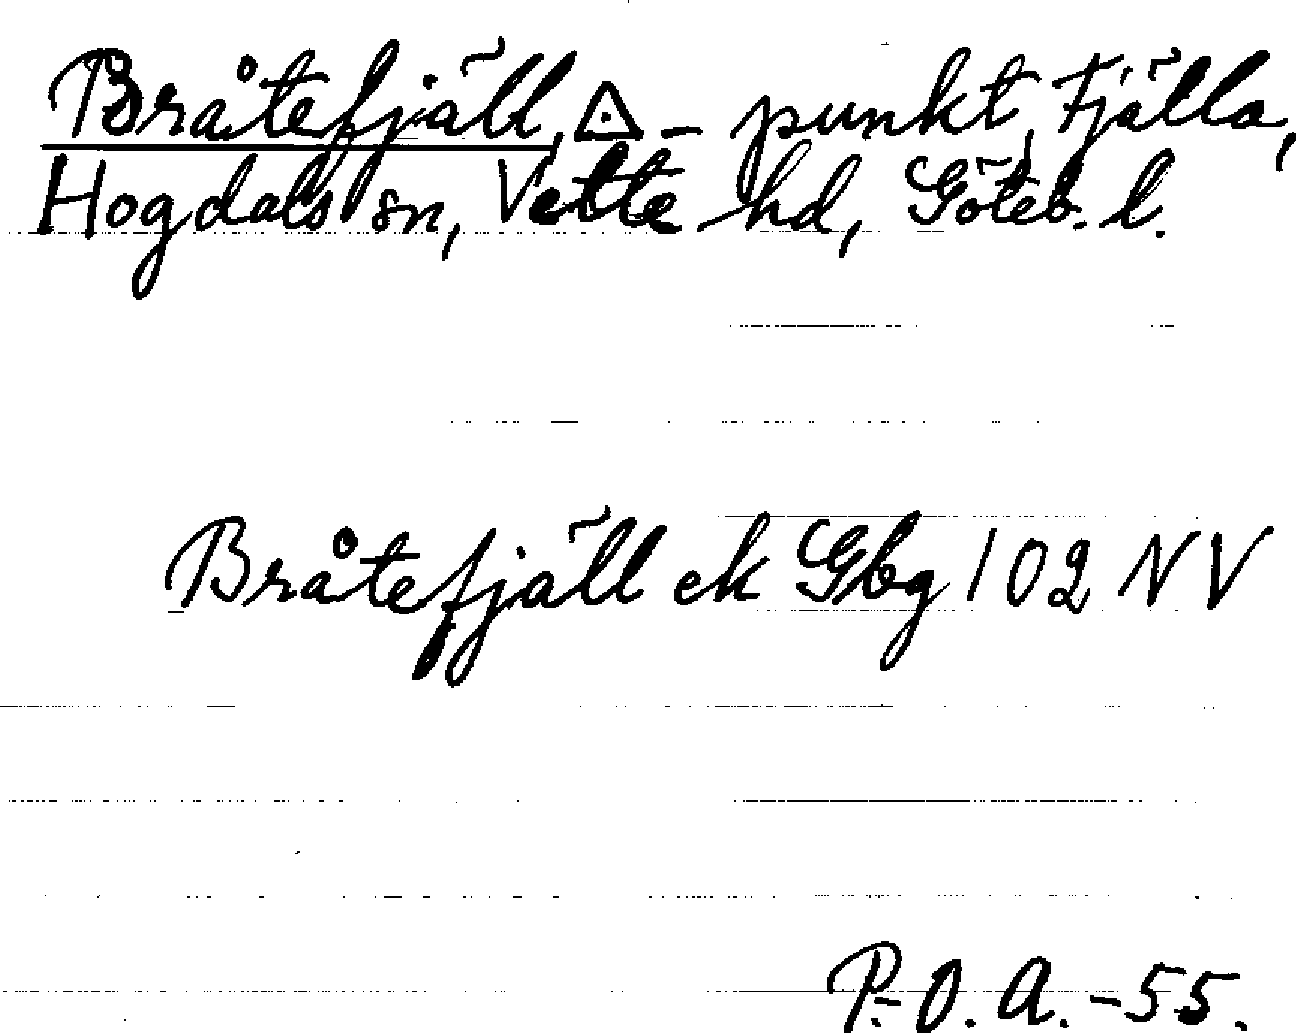 Bråtefjäll, △ – punkt, Fjälla,
Hogdals sn, Vette hd, Göteb. l.
Bråtefjäll ek Gbg 102 NV
P.-O. A. -55.